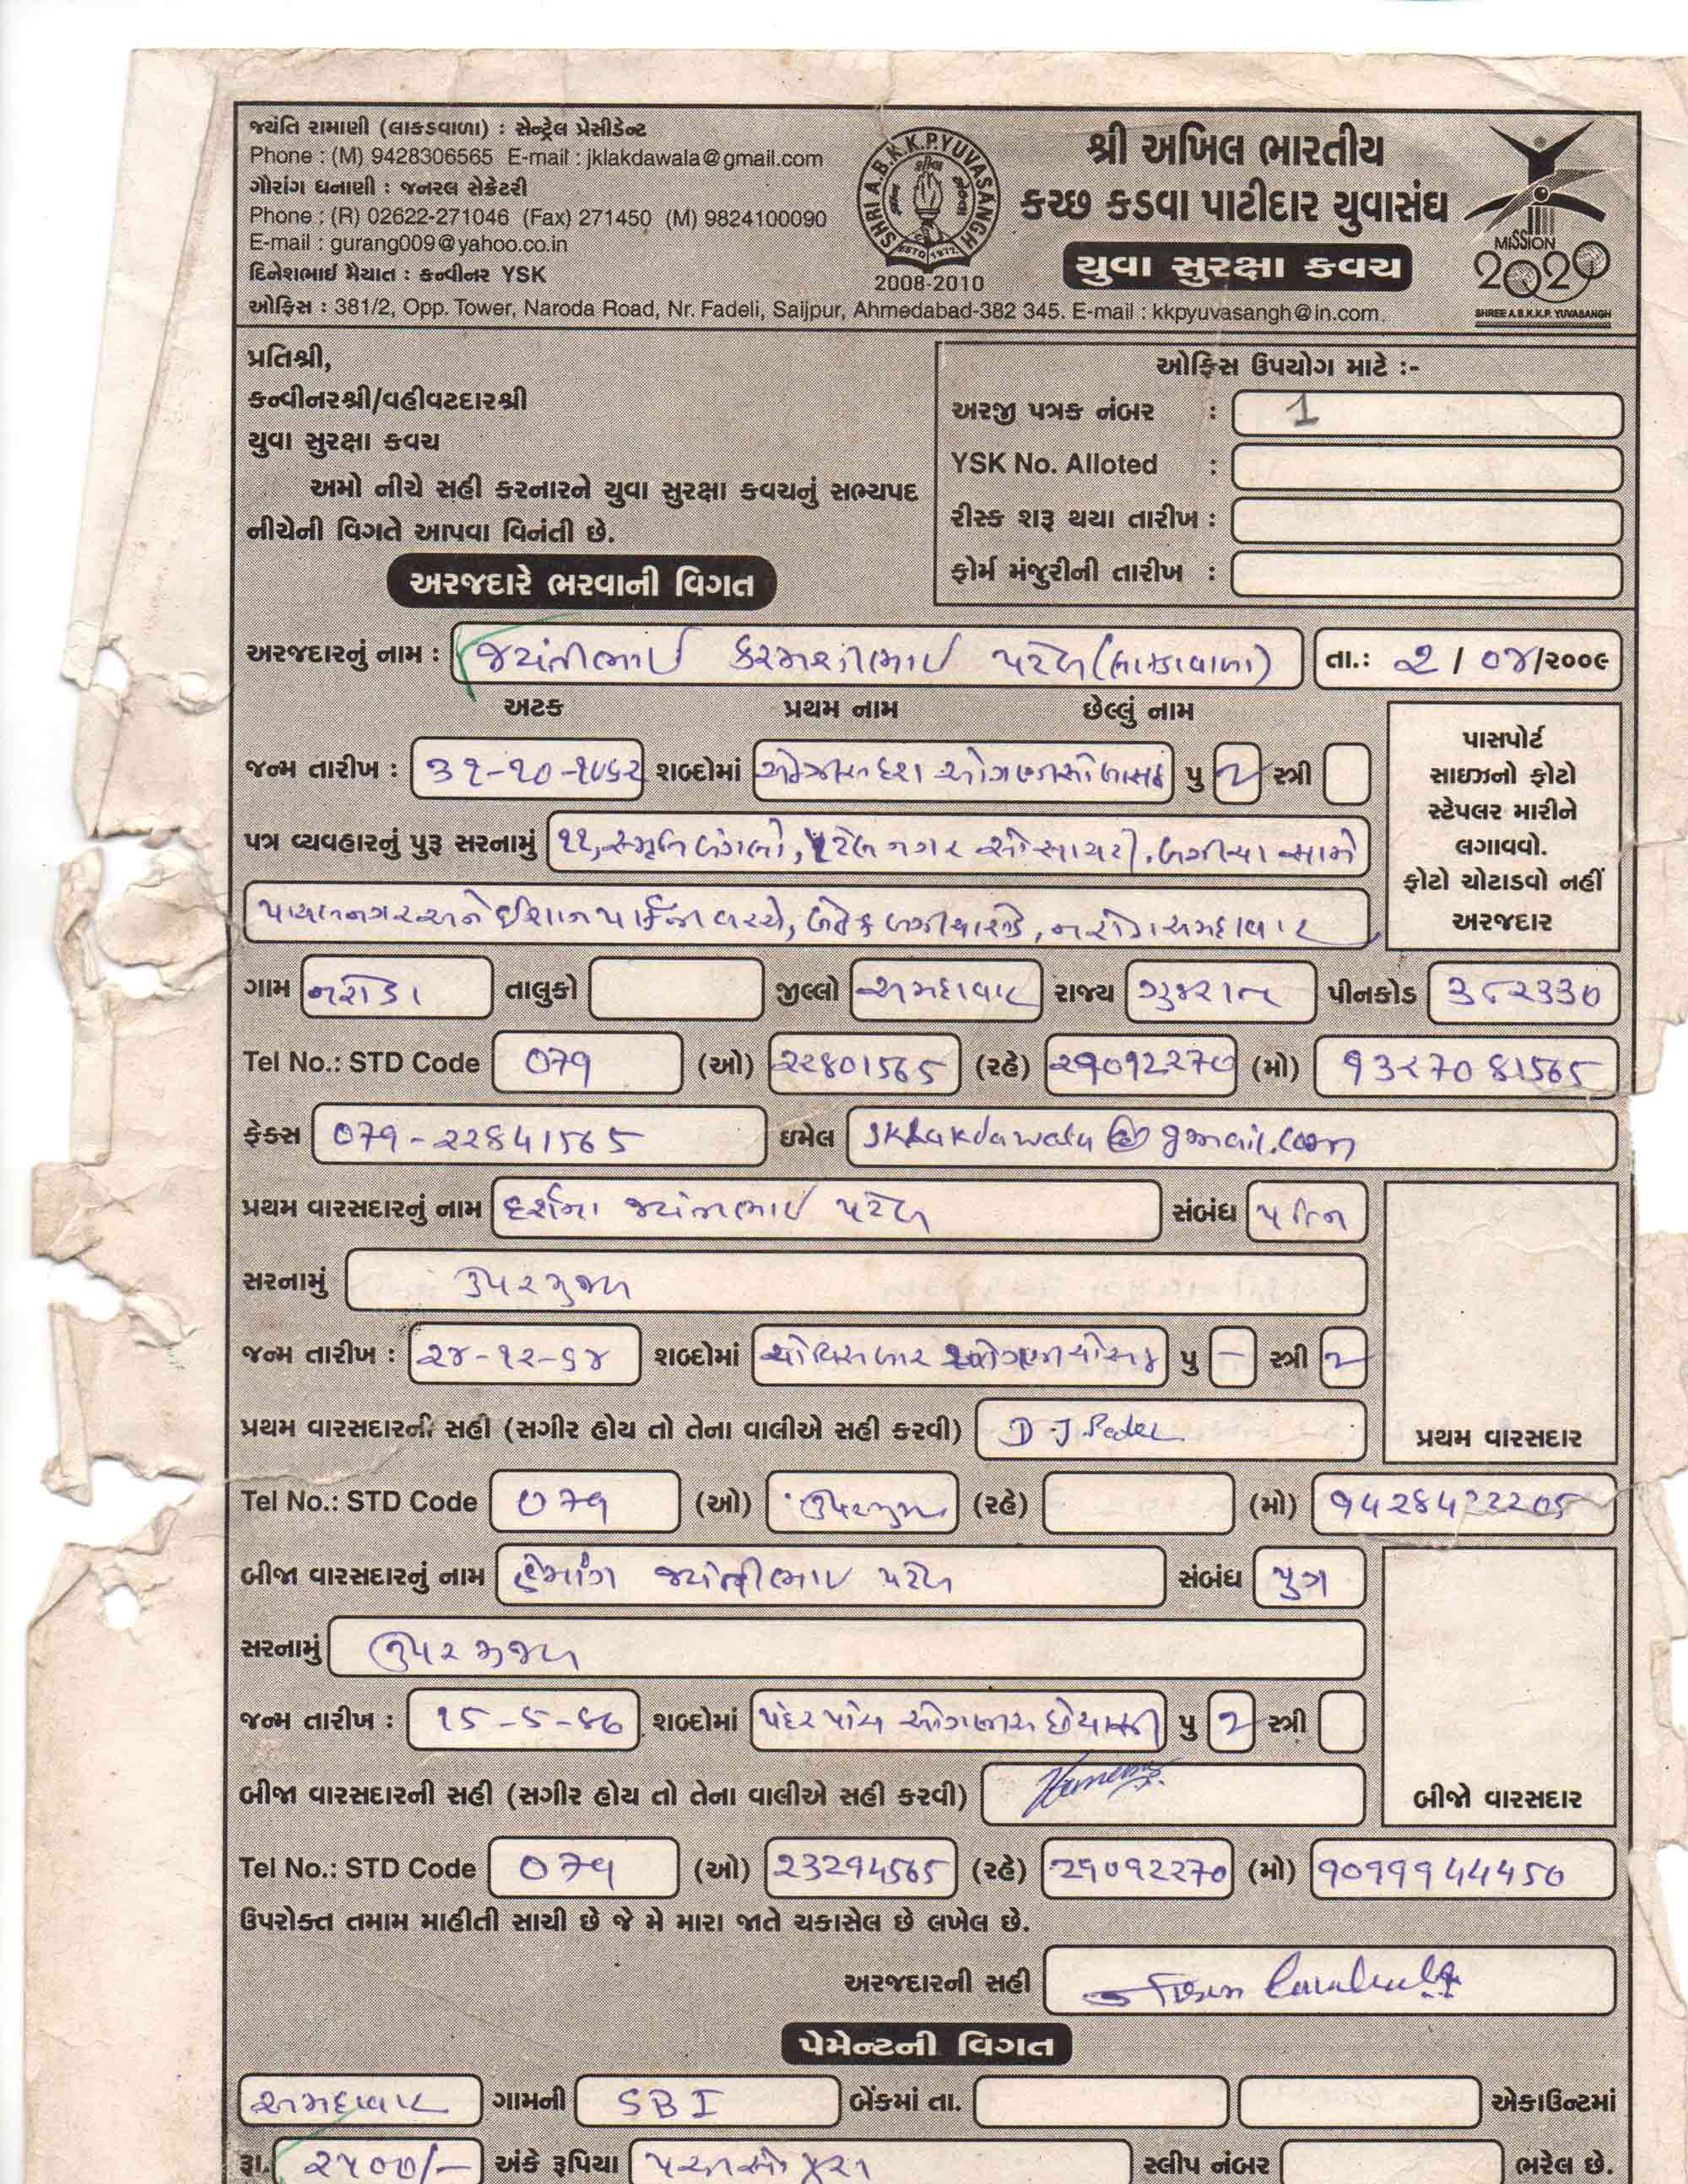 જયંતિ રામાણી (લાકડાવાળા) : સેન્ટ્રલ પ્રેસીડેન્ટ
Phone : (M) 9428306565 E-mail : jklakdawala@gmail.com
ગૌરાંગ ધનાણી : જનરલ સેક્રેટરી
Phone : (R) 02622-271046 (Fax) 271450 (M) 9824100090
E-mail : gurang009@yahoo.co.in
દિનેશભાઈ મૈયાત : કન્વીનર YSK
ઓફિસ : 381/2, Opp. Tower, Naroda Road, Nr. Fadeli, Saijpur, Ahmedabad-382 345. E-mail : kkpyuvasangh@in.com.
SHRI A.B.K.K.P.YUVASANGH
2008-2010
શ્રી અખિલ ભારતીય
કચ્છ કડવા પાટીદાર યુવાસંઘ
યુવા સુરક્ષા કવચ
MISSION
2020
SHREE A.B.K.K.P. YUVASANGH
પ્રતિશ્રી,
કન્વીનરશ્રી/વહીવટદારશ્રી
યુવા સુરક્ષા કવચ
અમો નીચે સહી કરનારને યુવા સુરક્ષા કવચનું સભ્યપદ
નીચેની વિગતે આપવા વિનંતી છે.
ઓફિસ ઉપયોગ માટે :-
અરજી પત્રક નંબર : 1
YSK No. Alloted :
રીસ્ક શરૂ થયા તારીખ :
ફોર્મ મંજુરીની તારીખ :
અરજદારે ભરવાની વિગત
અરજદારનું નામ : જયંતીભાઈ કરમશીભાઈ પટેલ (લાકડાવાળા) તા.: ૨ / ૦૪/૨૦૦૯
અટક પ્રથમ નામ છેલ્લું નામ
જન્મ તારીખ : ૩૧-૧૦-૧૯૬૨ શબ્દોમાં એકત્રીસ દશ ઓગણીસો બાસઠ પુ સ્ત્રી
પાસપોર્ટ
સાઇઝનો ફોટો
સ્ટેપલર મારીને
લગાવવો.
ફોટો ચોટાડવો નહીં
અરજદાર
પત્ર વ્યવહારનું પુરૂ સરનામું ૧૧, સ્મૃતિ બંગલો, પટેલ નગર સોસાયટી, બગીચા સામે
પાયલનગર અને ઈશાન પાર્કની વચ્ચે, નરોડા અમદાવાદ
ગામ નરોડા તાલુકો જીલ્લો અમદાવાદ રાજ્ય ગુજરાત પીનકોડ ૩૮૨૩૩૦
Tel No.: STD Code 079 (ઓ) 22801565 (રહે) 29092270 (મો) 9327081565
ફેક્સ 079-22841565 ઇમેલ Jklakdawala@gmail.com
પ્રથમ વારસદારનું નામ દર્શના જયંતીભાઈ પટેલ સંબંધ પત્નિ
સરનામું ઉપર મુજબ
જન્મ તારીખ : ૨૪-૧૨-૬૪ શબ્દોમાં ચોવિસ બાર ઓગણીસો ચોસઠ પુ - સ્ત્રી
પ્રથમ વારસદારની સહી (સગીર હોય તો તેના વાલીએ સહી કરવી) D J Patel
પ્રથમ વારસદાર
Tel No.: STD Code 079 (ઓ) ઉપર મુજબ (રહે) (મો) 9428422205
બીજા વારસદારનું નામ હેમાંગ જયંતીભાઈ પટેલ સંબંધ પુત્ર
સરનામું ઉપર મુજબ
જન્મ તારીખ : ૧૫-૫-૮૬ શબ્દોમાં પંદર પાંચ ઓગણીસ છેયાસી પુ સ્ત્રી
બીજા વારસદારની સહી (સગીર હોય તો તેના વાલીએ સહી કરવી)
બીજો વારસદાર
Tel No.: STD Code 079 (ઓ) 23294565 (રહે) 29092270 (મો) 9099944450
ઉપરોક્ત તમામ માહીતી સાચી છે જે મે મારા જાતે ચકાસેલ છે લખેલ છે.
અરજદારની સહી
પેમેન્ટની વિગત
અમદાવાદ ગામની SBI બેંકમાં તા. એકાઉન્ટમાં
રૂા. ૨૫૦૦/- અંકે રૂપિયા પચ્ચીસો પુરા સ્લીપ નંબર ભરેલ છે.